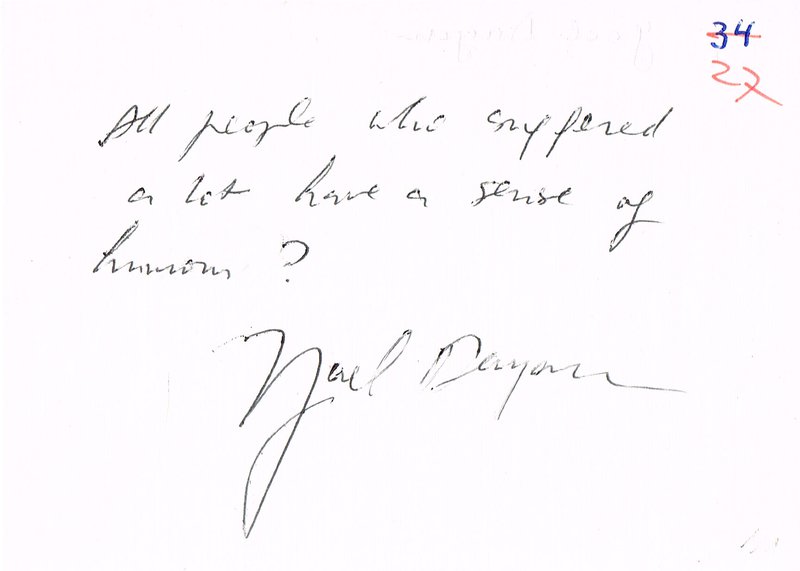 34
27
All people who suffered
a lot have a sense of
humour ?
Yael Dayan